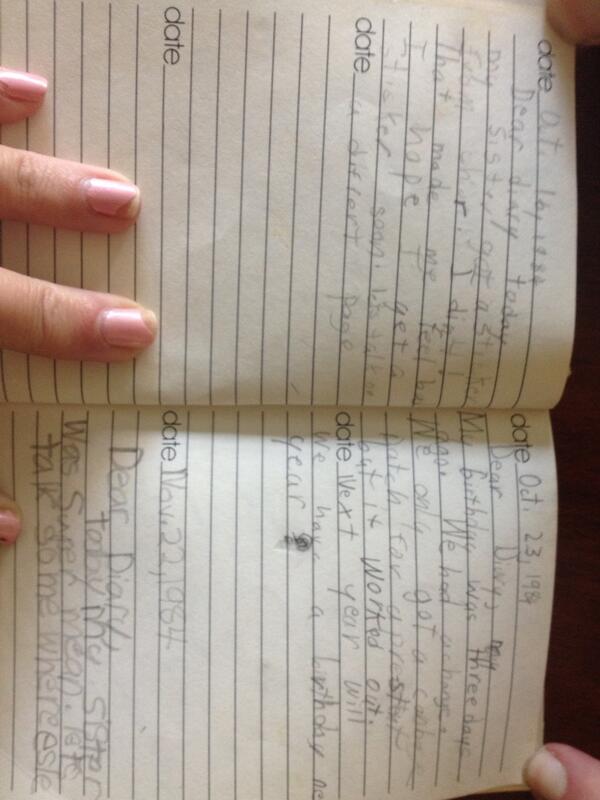 date Oct. 16, 1984
Dear diary today
my sister got a sticker
from
That made me feel bad
I hope I get a
sticker soon. lets talk on
date a differt page
date
date Oct. 23, 1984
Dear Diary, my
My birthday was three days
ago. We had a change.
We only got a
Patch for a present
but it worked out.
date Next year will
We have a birthday
year
date Nov. 22, 1984
Dear Diary,
today my sister
Was Super mean. lets
talk some